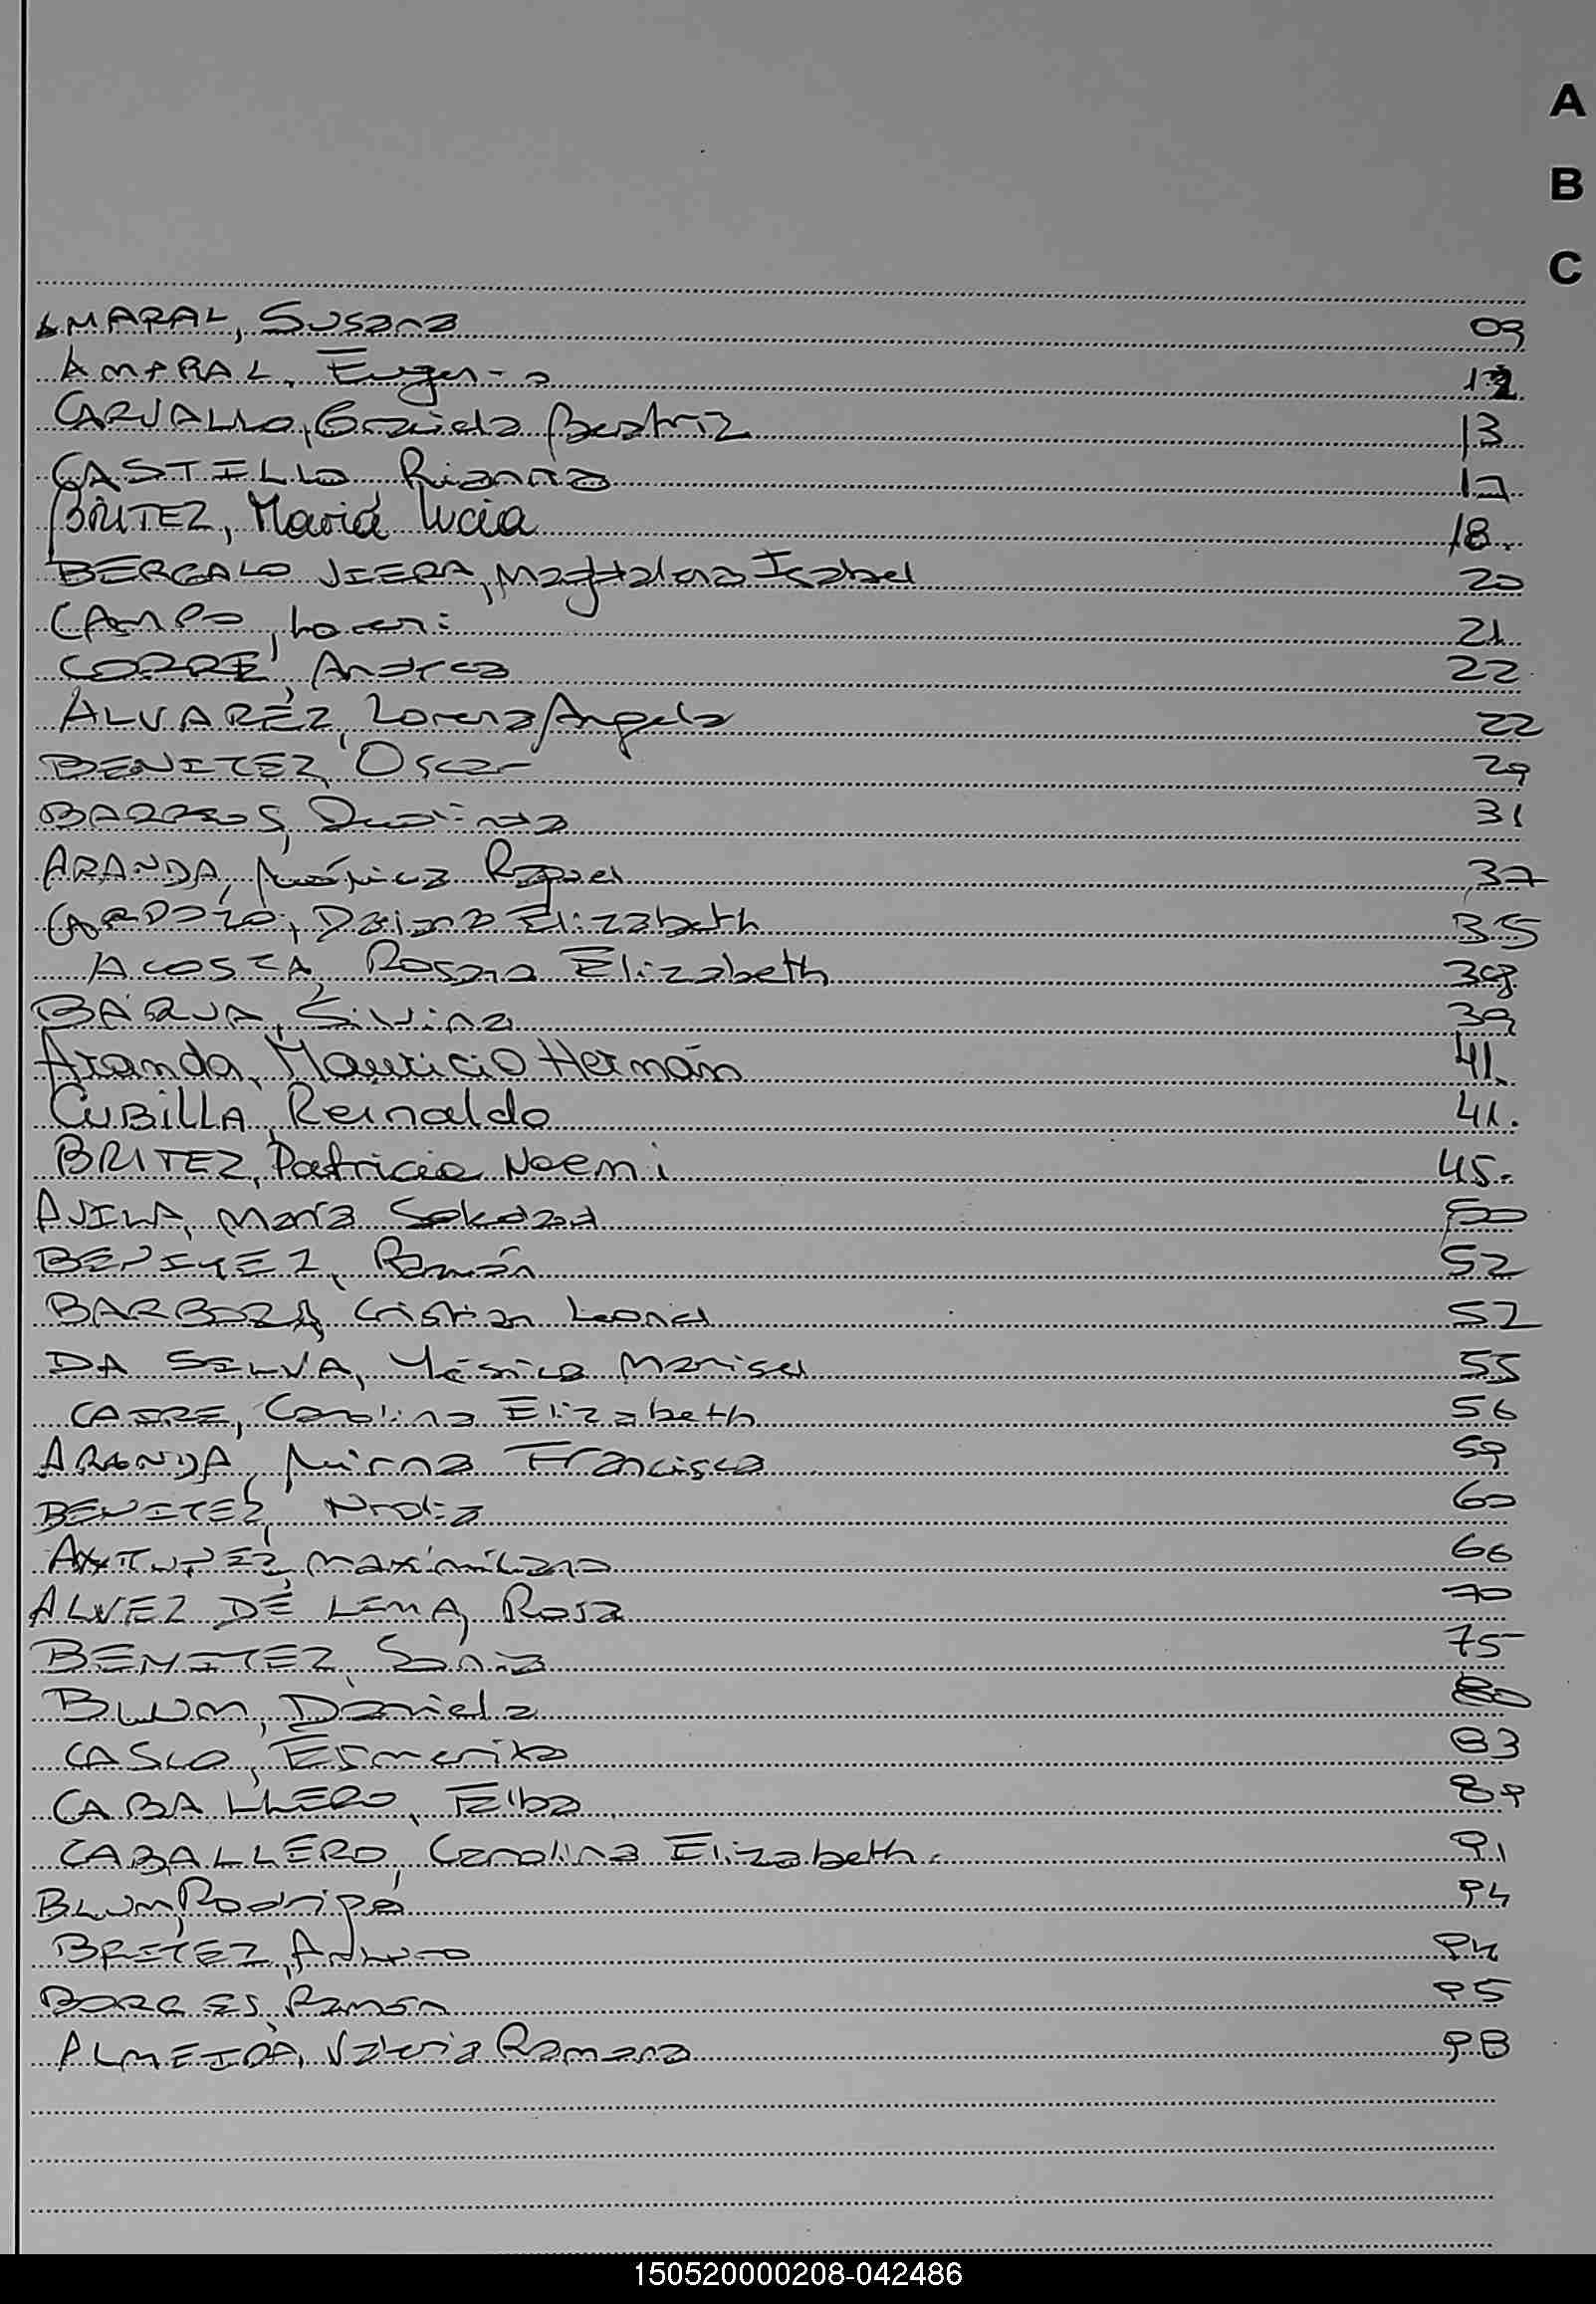 A
B
C
AMARAL, Susana 09
AMARAL, Eugenio 12
CARVALLO, Graciela Beatriz 13
CASTILLO Rianna 17
BRITEZ, Mariá Lucia 18.
BERGALO VIERA, Magdalena Isabel 20
CAMPO, Loreni 21
CORRE, Andrea 22
ALVAREZ, Lorena Angela 22
BENITEZ, Oscar 29
BARRIOS, 31
ARANDA, Mónica Raquel 37
CARDOZO, Daiana Elizabeth 35
ACOSTA, Rosana Elizabeth 38
BAQUA, Silvina 39
Aranda, Mauricio Hernán 41.
CUBILLA, Reinaldo 41.
BRITEZ, Patricia Noemi 45.
AVILA, María Soledad 50
BENITEZ, Ramón 52
BARBOZA, Cristian Leonel 52
DA SILVA, Yésica Marisel 55
CAIRE, Carolina Elizabeth 56
ARANDA, Mirna Francisca 59
BENITEZ, 60
ANTUNEZ, Maximiliano 66
ALVEZ DE LIMA, Rosa 70
BENITEZ, Sonia 75
BLUM, Daniela 80
CASCO, Esmerita 83
CABALLERO, Elba 89
CABALLERO, Carolina Elizabeth. 91
BLUM, Rodrigo 94
BRITEZ, Arturo 94
BORGES, Ramón 95
ALMEIDA, Valeria Ramona 98
150520000208-042486